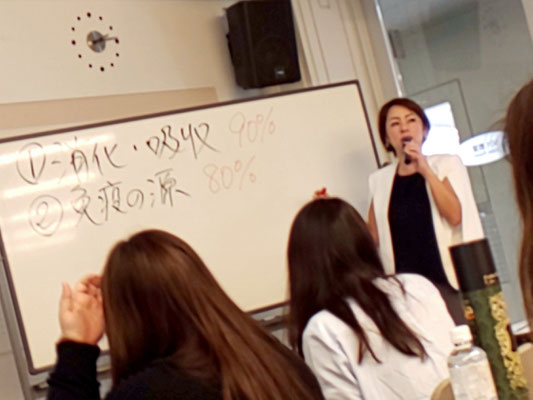 ①消化・吸収 90%
②免疫の源 80%